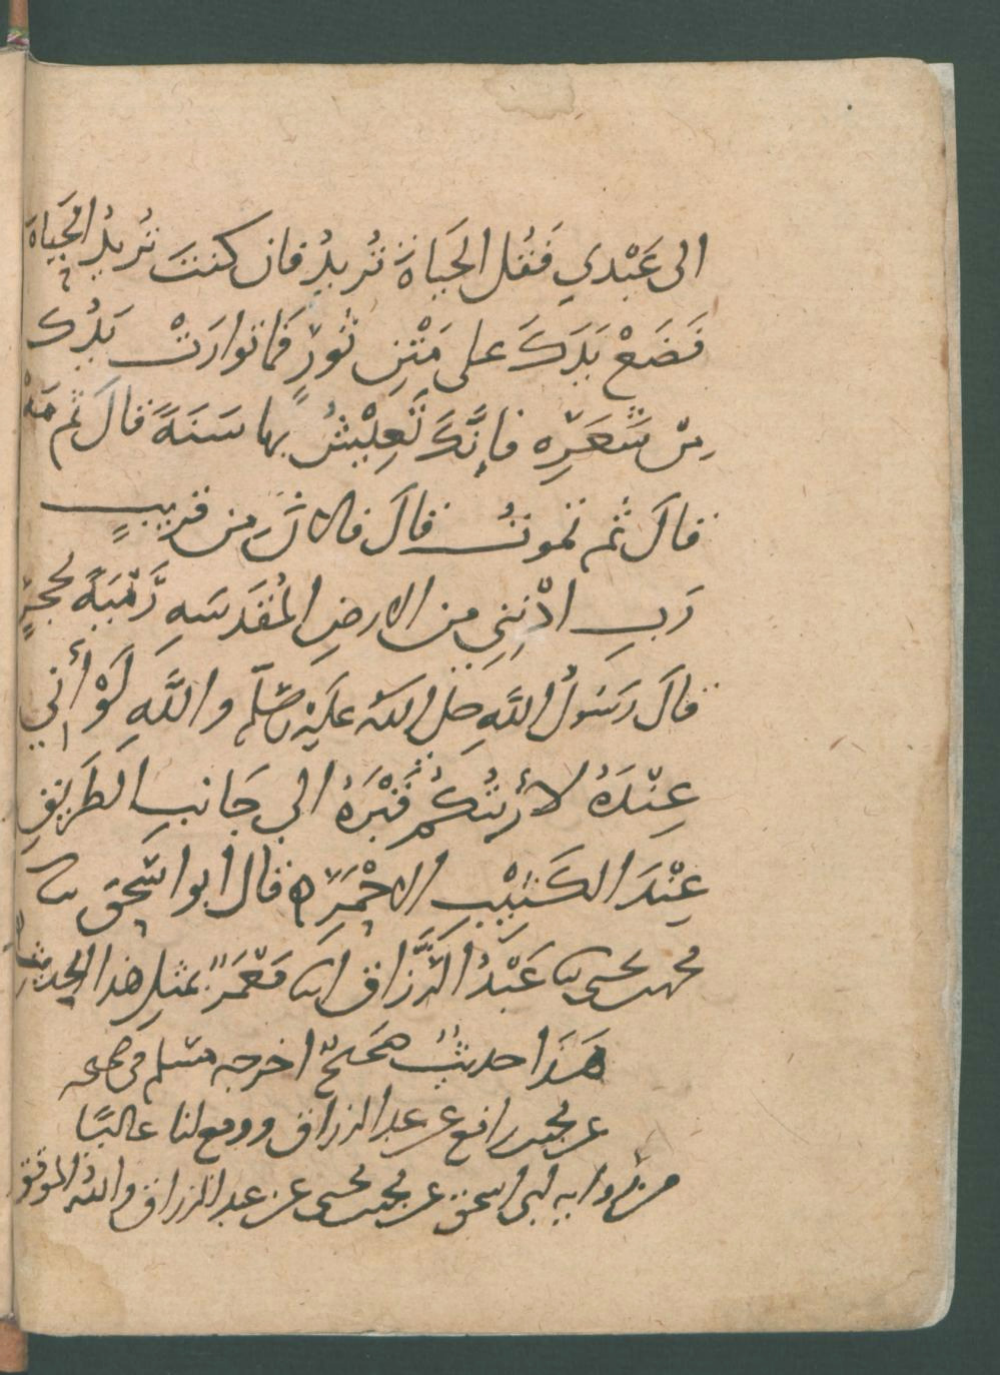 الى عَبْدي فَقُل الحَيَاةَ تُريدُ فان كنتَ تُريدُ الحَيَاةَ
فَضَعْ يَدَكَ على مَتْنِ ثورٍ فما توارَتْ يَدُك
مِنْ شَعَرِه فإنَّكَ تَعِيْشُ بها سَنَةً قالَ ثم مَهْ
قالَ ثم تموتُ قالَ فالانَ مِن قريبٍ
رَبِ ادْنِنِي من الارضِ المُقَدسَهِ رَمْيَةً بحجرٍ
قالَ رَسُولُ اللَّهِ صلى الله عليه وسلم واللَّهِ لَوْ أني
عِنْدَهُ لأرَيْتُكُم قَبْرَهُ الى جَانبِ الطَريقِ
عِنْدَ الكَثِيْبِ الاحْمَرِ ه قال ابو اسحق سا
محمد بن يحيى سا عَبْدُ الرَّزَّاق انا مَعْمَرٌ بمثلِ هذا الحديثِ
هَذا حديثٌ صَحيحٌ اخرجه مسلم في صحيحه
عن محمد بن رافع عن عبد الرزاق ووقع لنا عاليًا
من رواية ابي اسحق عن محمد بن يحيى عن عبد الرزاق والله الموفق